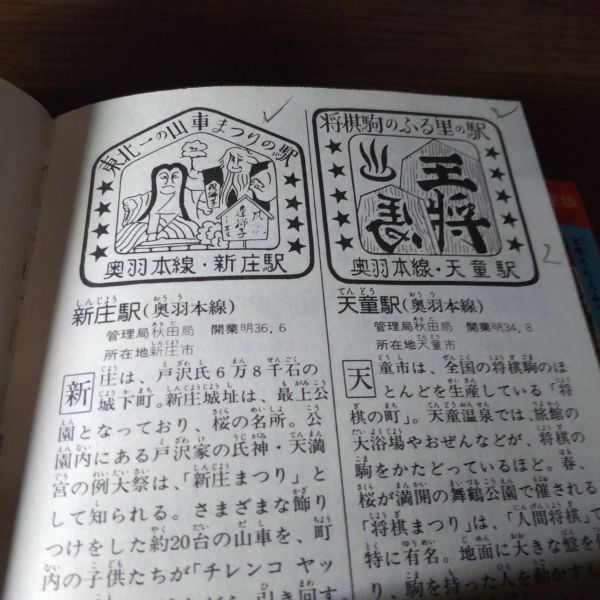 東北一の山車まつりの駅
奥羽本線・新庄駅
新庄駅(奥羽本線)
管理局秋田局 開業明36.6
所在地新庄市
新庄は、戸沢氏6万8千石の
城下町。新庄城址は、最上公
園となっており、桜の名所。公
園内にある戸沢家の氏神・天満
宮の例大祭は、「新庄まつり」と
して知られる。さまざまな飾り
つけをした約20台の山車を、町
内の子供たちが「チレンコ ヤッ
将棋駒のふる里の駅
王将
奥羽本線・天童駅
天童駅(奥羽本線)
管理局秋田局 開業明34.8
所在地天童市
天童市は、全国の将棋駒のほ
とんどを生産している「将
棋の町」。天童温泉では、旅館の
大浴場やおぜんなどが、将棋の
駒をかたどっているほど。春、
桜が満開の舞鶴公園で催される
「将棋まつり」は、「人間将棋」で
特に有名。地面に大きな盤を
り、駒を持った人を動かすも